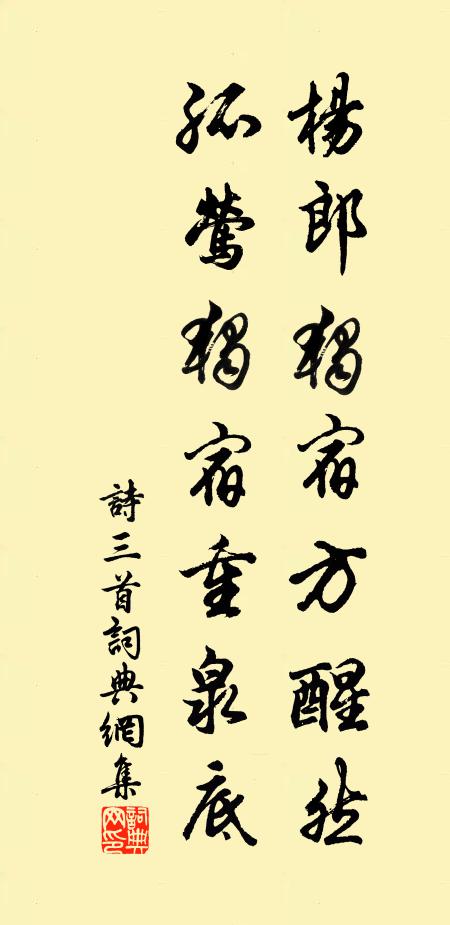 楊郎獨宿方醒然
孤鶯獨宿重泉底
詩三首詞典網集
詞典
网印